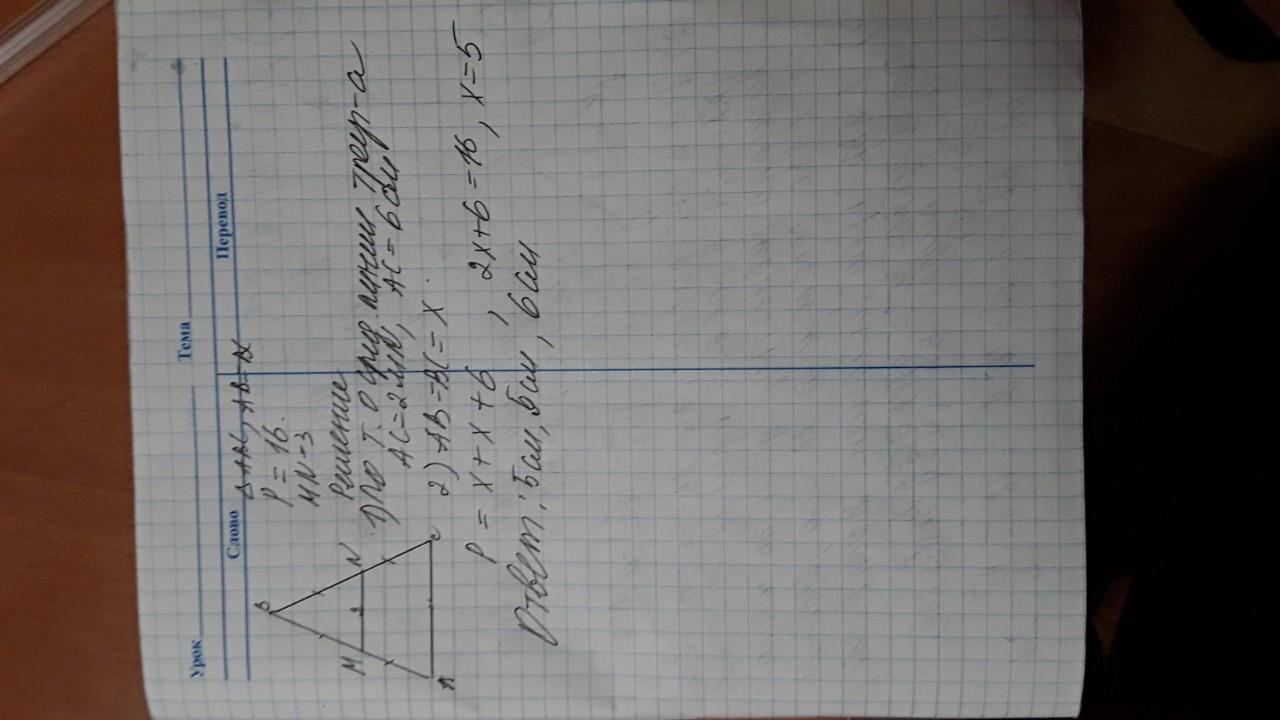 Урок Тема
Слово Перевод
Δ ABC, AB =
P = 16.
MN = 3
Решение
1) По т. о сред линии треуг-а
AC = 2MN, AC = 6 см
2) AB = BC = x.
P = x + x + 6 , 2x + 6 = 16, x = 5
Ответ: 5 см, 5 см, 6 см
B
M N
A C